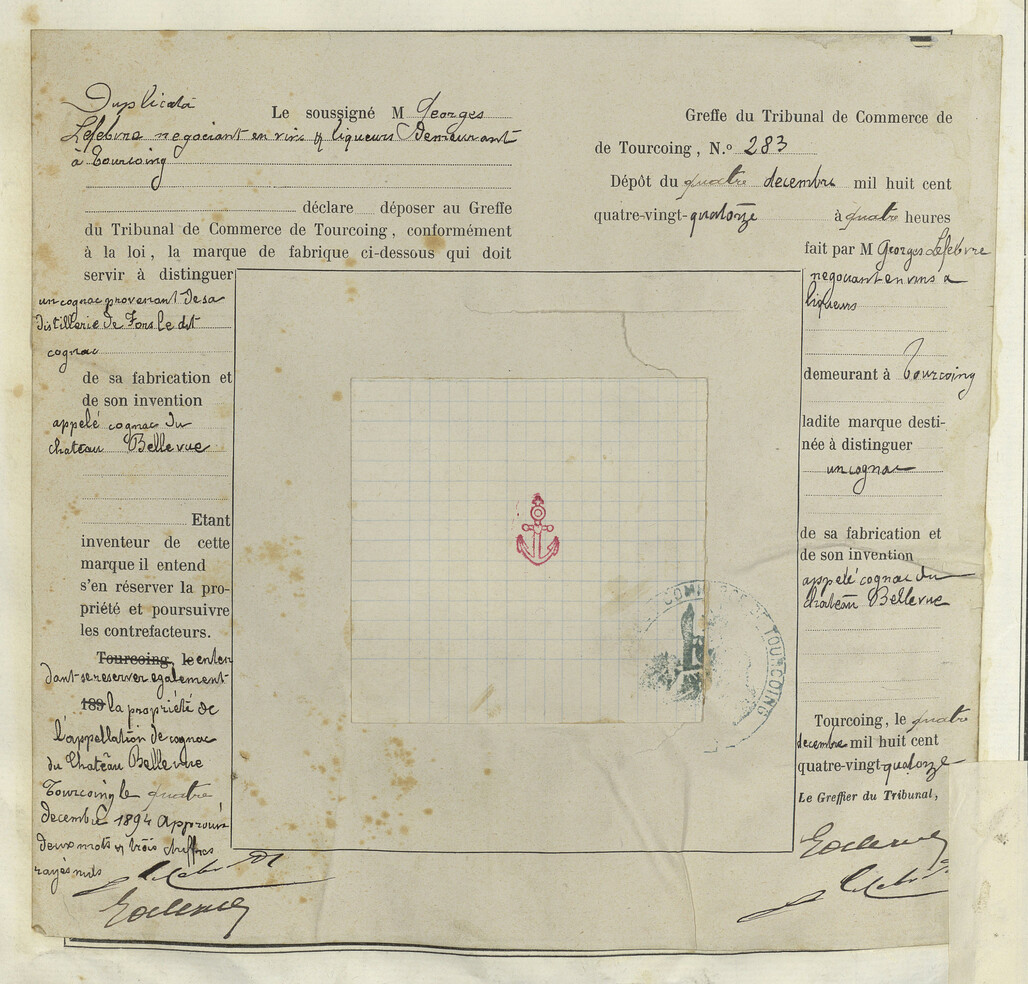 Duplicata
Le soussigné M Georges
Lefebvre negociant en vins & liqueurs Demeurant
à Tourcoing
déclare déposer au Greffe
du Tribunal de Commerce de Tourcoing, conformément
à la loi, la marque de fabrique ci-dessous qui doit
servir à distinguer
un cognac provenant de sa
distillerie de Fons le dit
cognac
de sa fabrication et
de son invention
appelé cognac du
chateau Bellevue
Etant
inventeur de cette
marque il entend
s'en réserver la pro-
priété et poursuivre
les contrefacteurs.
Tourcoing, le enten
dant se reserver egalement
189 la propriété de
l'appellation de cognac
du Château Bellevue
Tourcoing le quatre
decembre 1894 Approuvé
deux mots & trois chiffres
rayés nuls
Greffe du Tribunal de Commerce de
de Tourcoing, N.o 283
Dépôt du quatre decembre mil huit cent
quatre-vingt-quatorze à quatre heures
fait par M Georges Lefebvre
negociant en vins &
liqueurs
demeurant à Tourcoing
ladite marque desti-
née à distinguer
un cognac
de sa fabrication et
de son invention
appelé cognac du
Chateau Bellevue
Tourcoing, le quatre
decembre mil huit cent
quatre-vingt-quatorze
Le Greffier du Tribunal,
COMMERCE DE TOURCOING